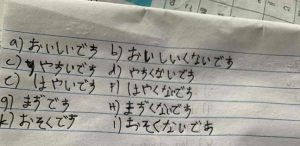 a) おいしいです b) おいしいくないです
c) やすいです d) やすくないです
e) はやいです f) はやくないです
g) まずです H) まずくないです
k) おそくです i) おそくないです